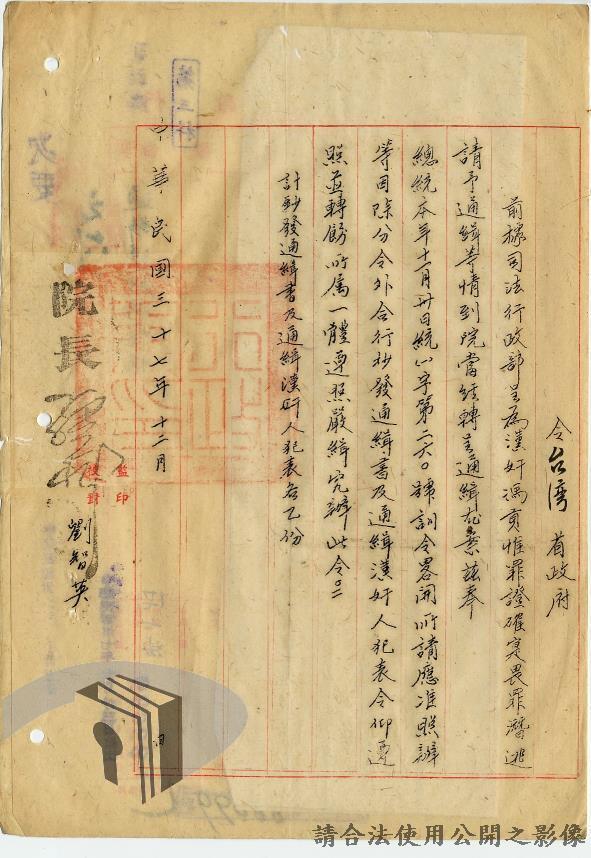 令台湾省政府
前據司法行政部呈為漢奸馮貢惟罪證確實畏罪潛逃
請予通緝等情到院當經轉呈通緝在案茲奉
總統本年十一月卅日統(八)字第二六〇號訓令畧開所請應准照辦
等因除分令外合行抄發通緝書及通緝漢奸人犯表令仰遵
照並轉飭所属一體遵照嚴緝究辦此令。
計抄發通緝書及通緝漢奸人犯表各乙份
院長
中華民國三十七年十二月
日
監印
劉智英
第三科
請合法使用公開之影像